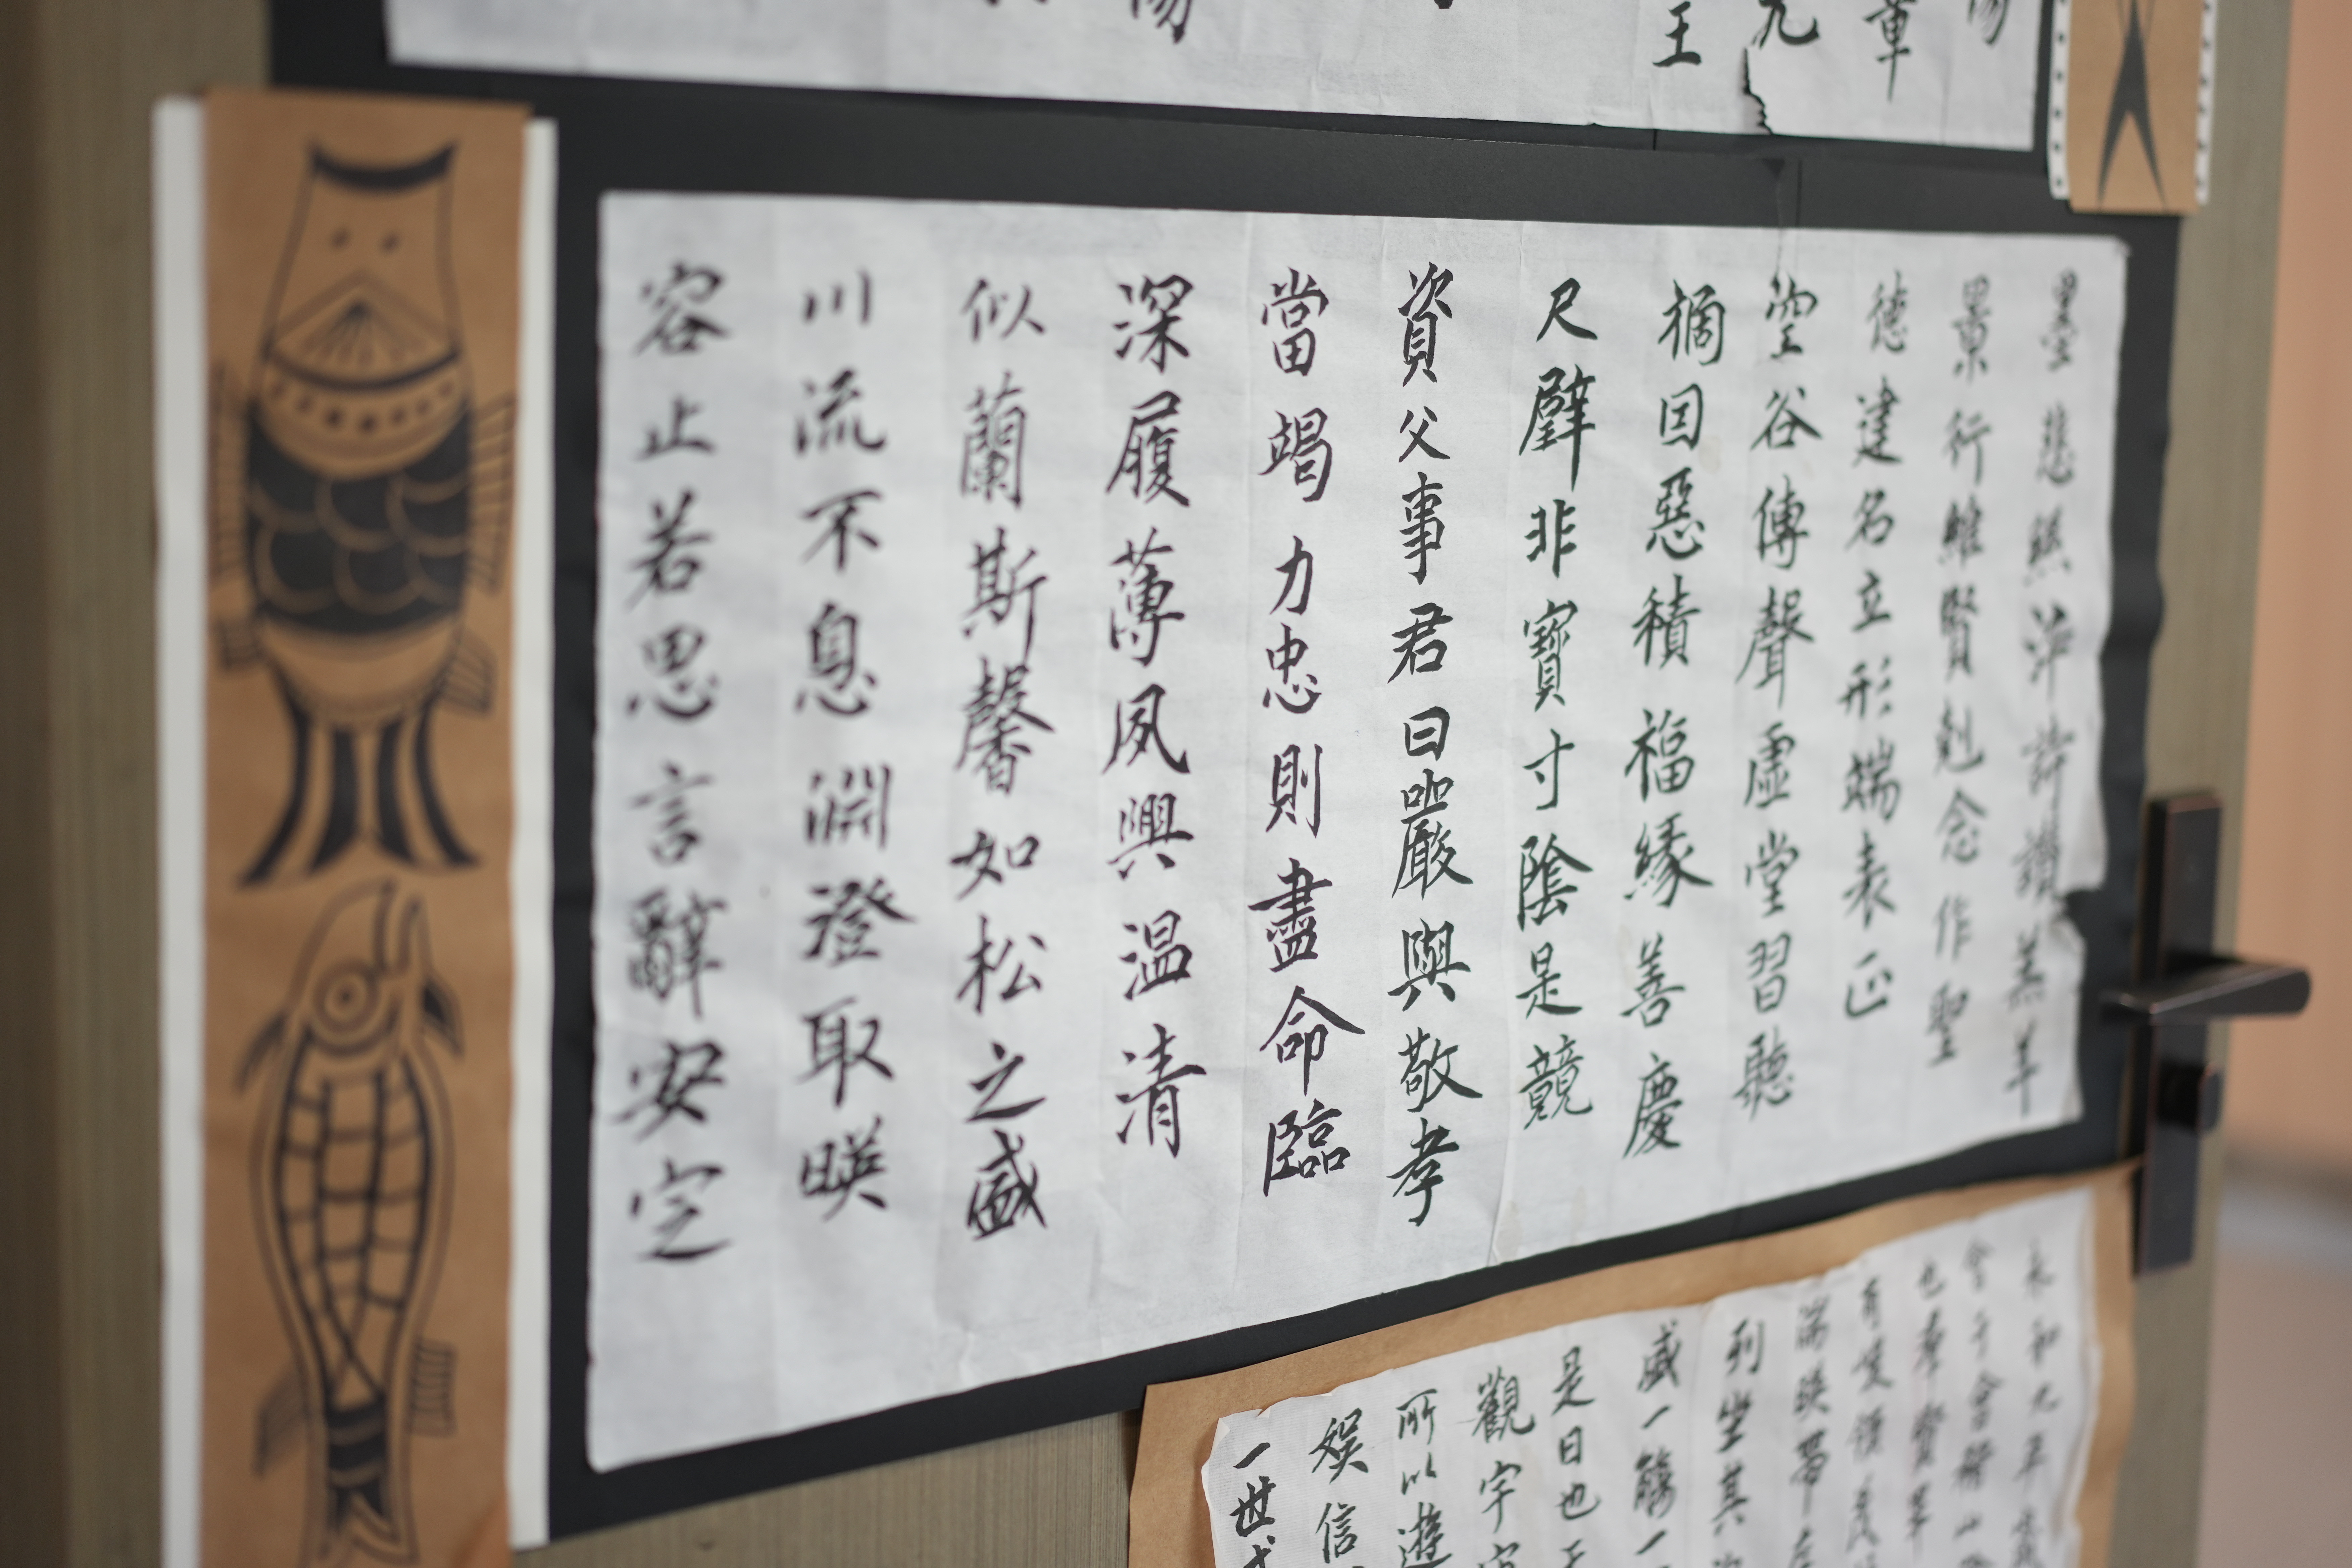 章
九
王
墨悲絲染詩讚羔羊
景行維賢剋念作聖
德建名立形端表正
空谷傳聲虛堂習聽
禍因惡積福緣善慶
尺璧非寶寸陰是競
資父事君曰嚴與敬孝
當竭力忠則盡命臨
深履薄夙興温清
似蘭斯馨如松之盛
川流不息淵澄取暎
容止若思言辭安定
永和九年歲
會于會稽山
也羣賢畢
有峻領茂
湍暎帶左
列坐其
盛一觴一
是日也天
觀宇宙
所以遊
娛信
一世